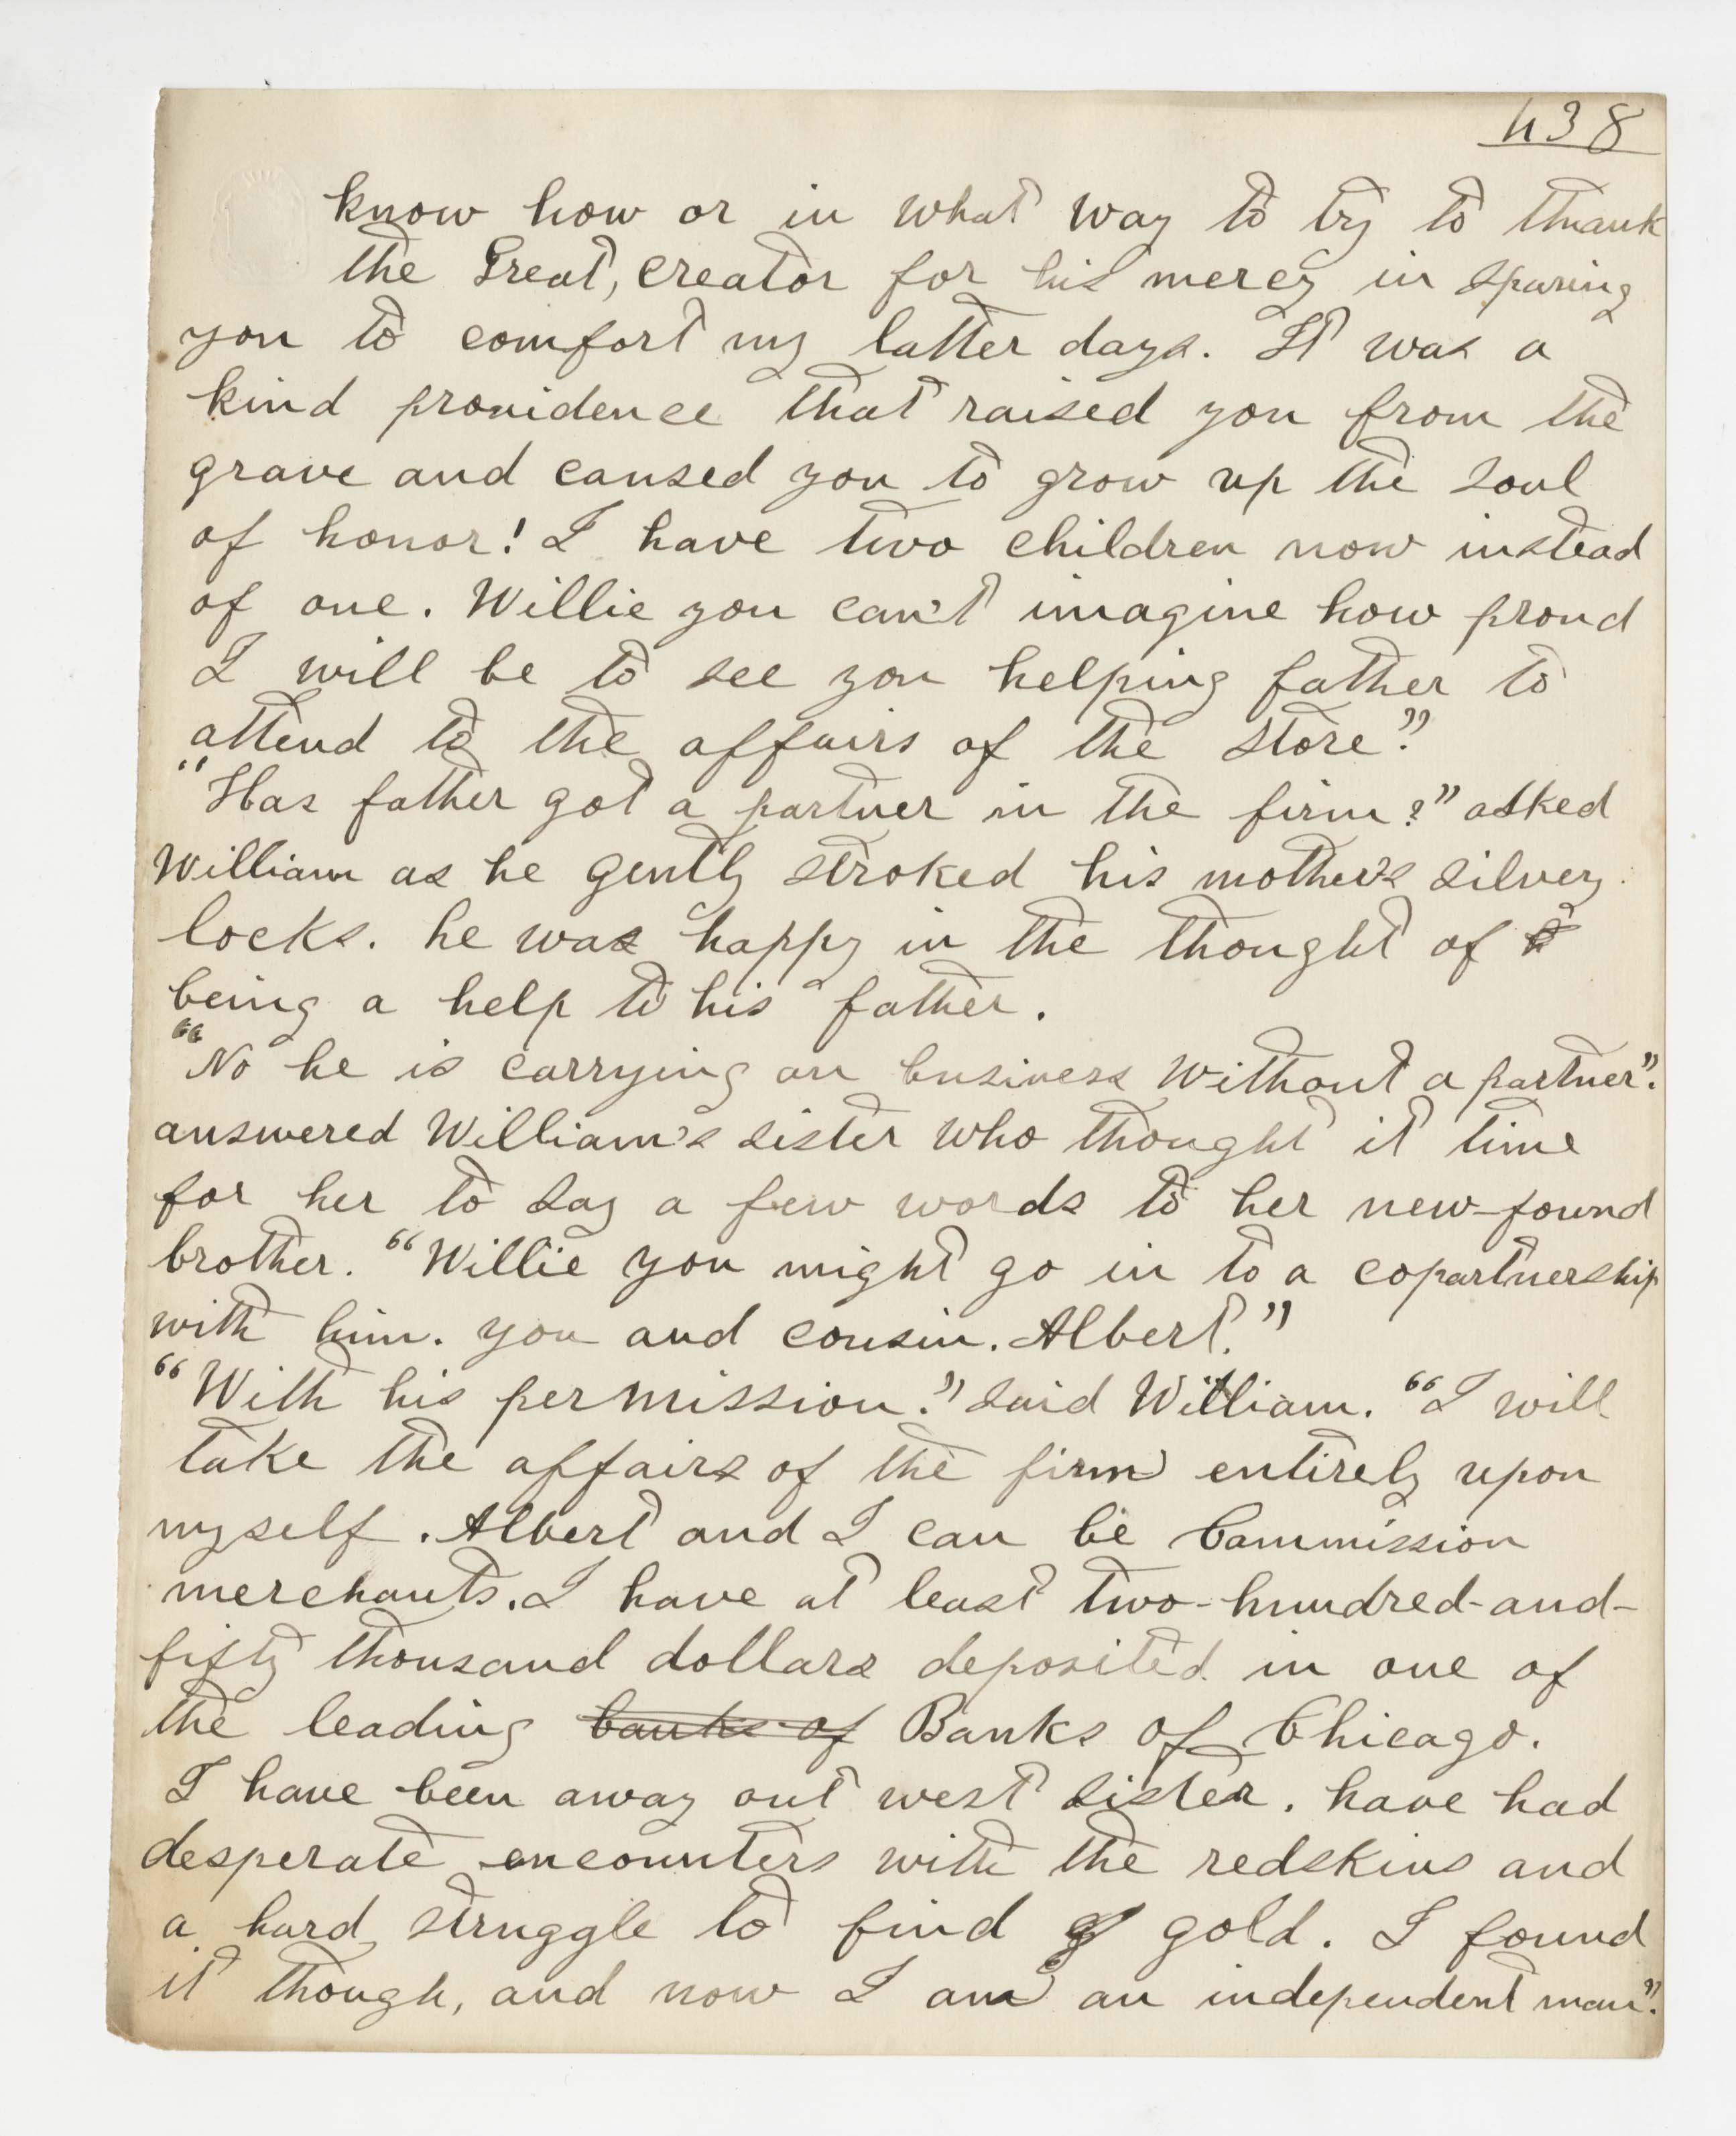 438
know how or in what way to try to thank
the Great, creator for his mercy in sparing
you to comfort my latter days. It was a
kind providence that raised you from the
grave and caused you to grow up the soul
of honor! I have two children now instead
of one. Willie you can't imagine how proud
I will be to see you helping father to
attend to the affairs of the store."
"Has father got a partner in the firm?" asked
William as he gently stroked his mother's silvery
locks. he was happy in the thought of
being a help to his father.
"No he is carrying on business without a partner".
answered William's sister who thought it time
for her to say a few words to her new-found
brother. "Willie you might go in to a copartnership
with him. you and cousin. Albert."
"With his permission." said William. "I will
take the affairs of the firm entirely upon
myself. Albert and I can be Commission
merchants. I have at least two-hundred-and-
fifty thousand dollars deposited in one of
the leading banks of Banks of Chicago.
I have been away out west sister. have had
desperate encounters with the redskins and
a hard struggle to find gold. I found
it though, and now I am an independent man".